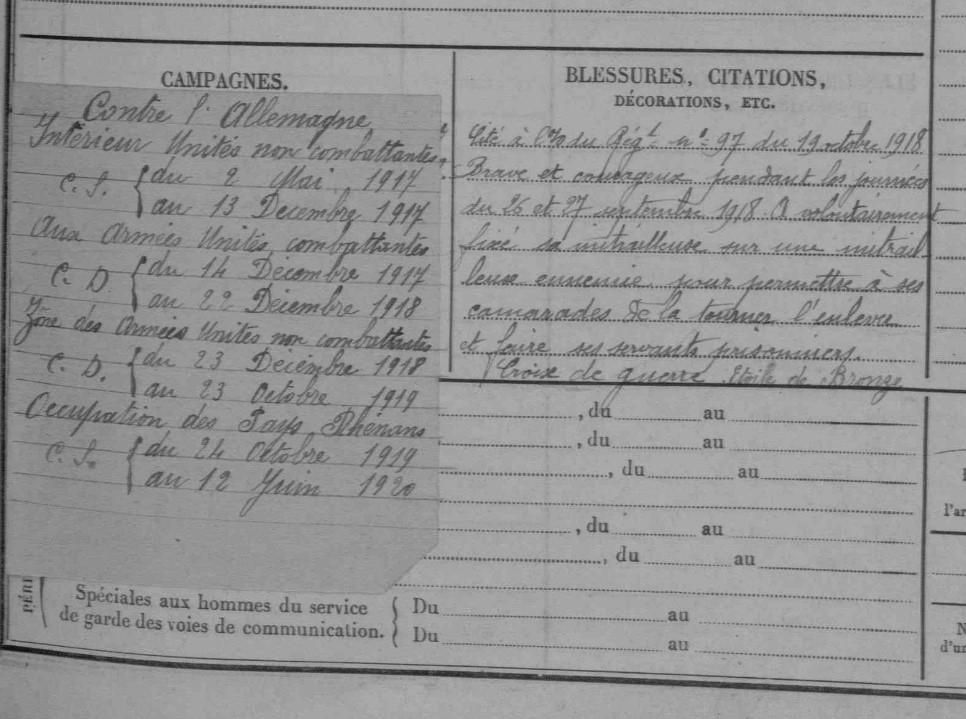 CAMPAGNES.
Contre l'Allemagne
Intérieur Unités non combattantes
C. S. { du 2 Mai 1917
au 13 Décembre 1917
Aux Armées Unités combattantes
C. D. { du 14 Décembre 1917
au 22 Décembre 1918
Zône des Armées Unités non combattantes
C. D. { du 23 Décembre 1918
au 23 Octobre 1919
Occupation des Pays Rhénans
C. S. { du 24 Octobre 1919
au 12 Juin 1920
BLESSURES, CITATIONS,
DÉCORATIONS, ETC.
Cité à l'O du Régt. n° 97 du 19 octobre 1918
Brave et courageux pendant les journées
du 26 et 27 septembre 1918. A volontairement
fixé sa mitrailleuse sur une mitrail-
leuse ennemie pour permettre à ses
camarades de la tourner l'enlever
et faire ses servants prisonniers.
Croix de guerre Etoile de Bronze
, du au
, du au
, du au
, du au
, du au
PÉRI
Spéciales aux hommes du service
de garde des voies de communication.
{ Du au
Du au
l'ar
N
d'un